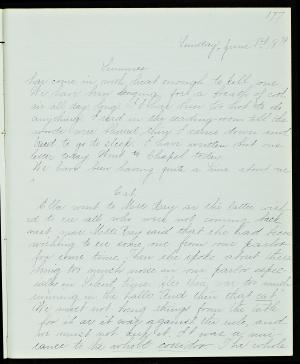 177
Sunday, June 1st 18
Summer
has come in with heat enough to kill one
We have been longing for a breath of cool
air all day long. I have been too hot to do
anything. I read in my rocking-room till the
words were blurred, then I came down and
tried to go to sleep. I have written but one
letter today. Went to Chapel today.
We have been having quite a time about me
"
Cat.
Ella went to Miss Day as the latter wish
ed to see all who were not coming back
next year Miss Day said that she had been
wishing to see some one from our parlor
for some time, then she spoke about there
being too much noise in our parlor espec
ially in silent hours also there was too much
running in the halls and then that cat.
We must not bring things from the table
for it as it was against the rule, and
we must not keep it it was a nuis
ance to the whole corridor. The whole